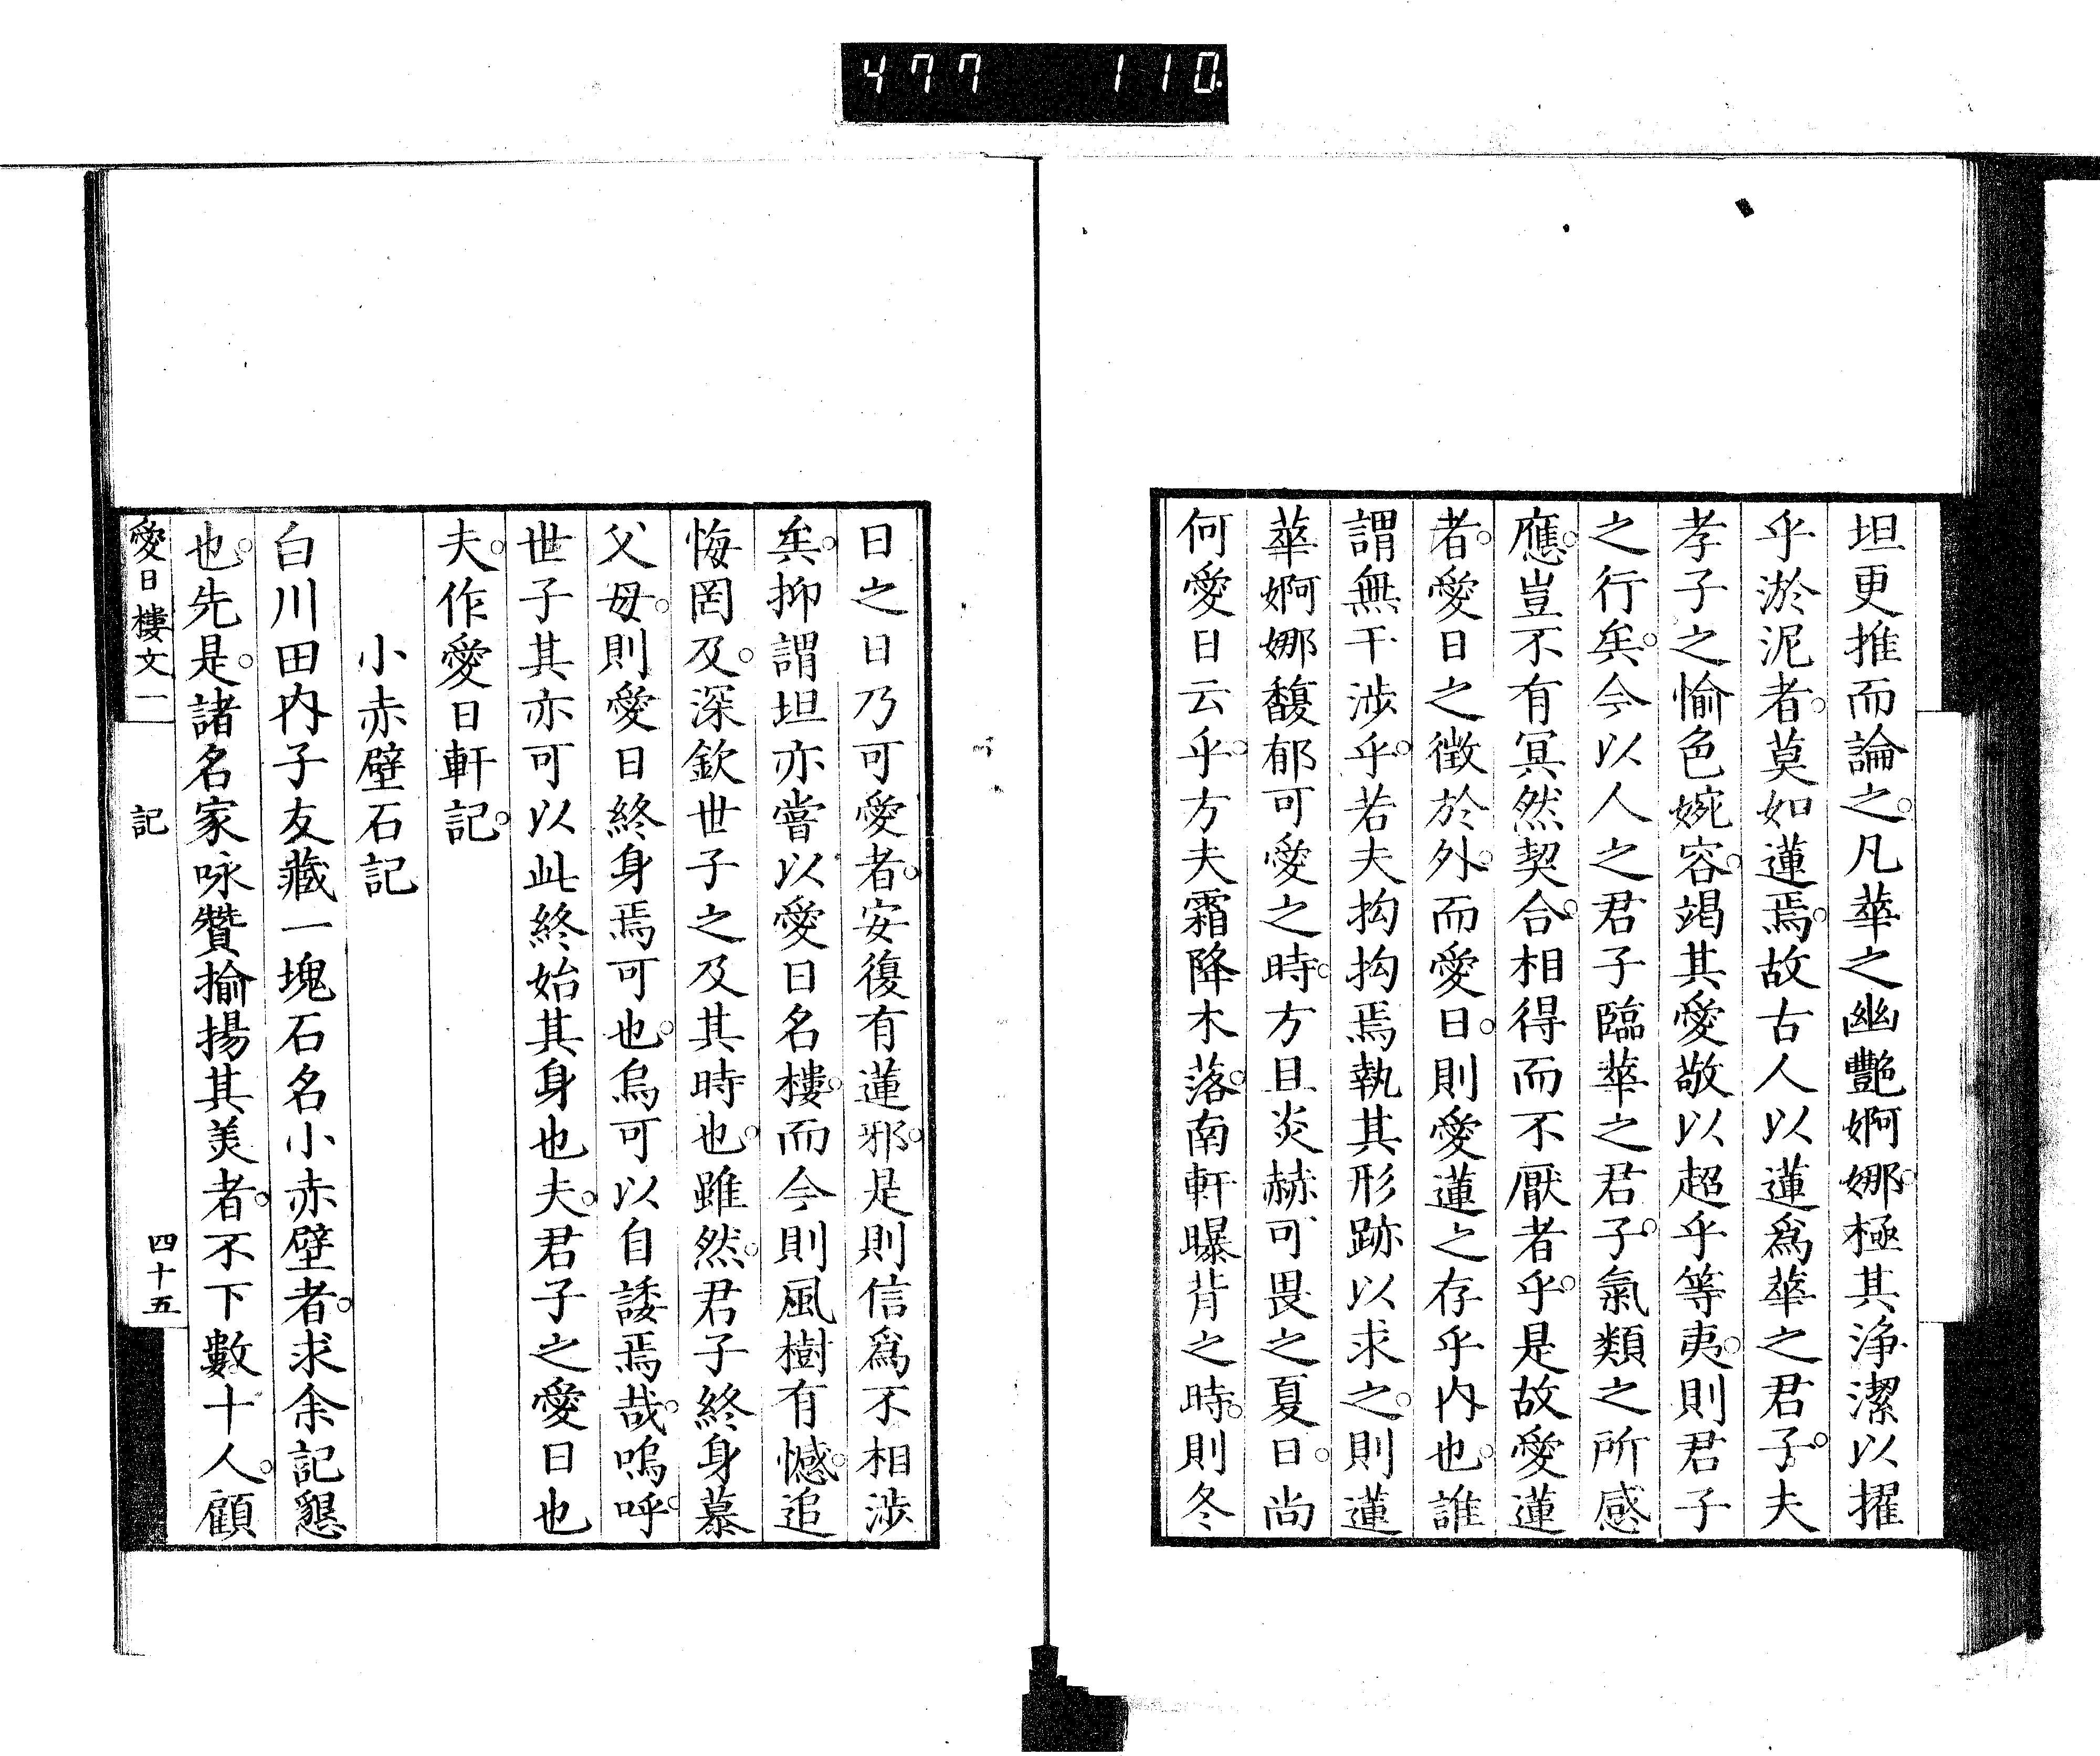 477 110.
坦更推而論之。凡華之幽艷婀娜。極其淨潔以擢
乎淤泥者。莫如蓮焉。故古人以蓮爲華之君子。夫
孝子之愉色婉容。竭其愛敬以超乎等夷。則君子
之行矣。今以人之君子臨華之君子。氣類之所感
應。豈不有冥然契合。相得而不厭者乎。是故愛蓮
者。愛日之徴於外。而愛日。則愛蓮之存乎内也。誰
謂無干涉乎。若夫拘拘焉執其形跡以求之。則蓮
華婀娜馥郁可愛之時。方且炎赫可畏之夏日。尚
何愛日云乎。方夫霜降木落。南軒曝背之時。則冬
日之日乃可愛者。安復有蓮邪。是則信爲不相渉
矣。抑謂坦亦嘗以愛日名樓。而今則風樹有憾。追
悔罔及。深欽世子之及其時也。雖然。君子終身慕
父母。則愛日終身焉可也。烏可以自諉焉哉。嗚呼。
世子其亦可以此終始其身也夫。君子之愛日也
夫。作愛日軒記。
小赤壁石記
白川田内子友藏一塊石名小赤壁者。求余記懇
也。先是。諸名家咏贊揄揚其美者。不下數十人。顧
愛日樓文一 記 四十五